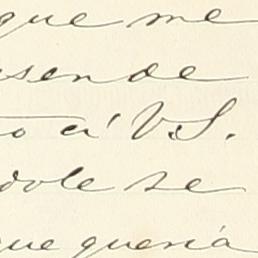 que me
sende
to á V.S.
dole se
que quería